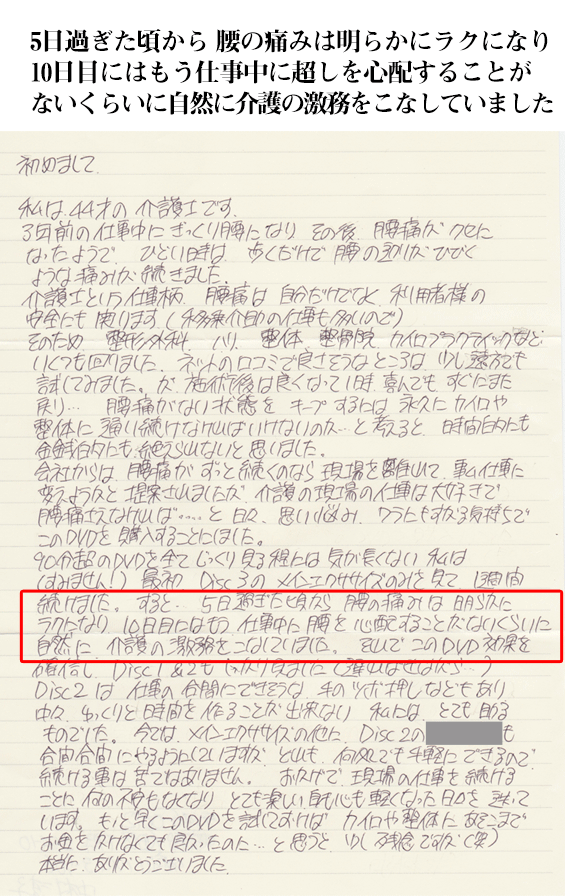 5日過ぎた頃から 腰の痛みは明らかにラクになり
10日目にはもう仕事中に超しを心配することが
ないくらいに自然に介護の激務をこなしていました
初めまして、
私は、44才の 介護士です。
3年前の仕事中に ぎっくり腰になり その後、腰痛が クセに
なったようで、ひどい時は、歩くだけで 腰の
ような痛みが続きました。
介護士という仕事柄、腰痛は 自分だけでなく、利用者様の
安全にも関ります。(移乗介助の仕事も多いので)
そのため 整形外科、ハリ、整体、整骨院、カイロプラクティックなど
いくつも回りました。ネットの口コミで良さそうなところは 少し遠方でも
試してみました。が、施術後は良くなって1時、喜んでも、すぐにまた
戻り… 腰痛がない状態を キープするには 永久にカイロや
整体に通い続けなければいけないのか…と考えると、時間的にも
金銭的にも、絶えられないと思いました。
会社からは、腰痛が ずっと続くのなら 現場を離れて、事ム仕事に
変えようかと提案されましたが、介護の現場の仕事は大好きで
腰痛さえなければ‥‥‥と 日々、思い悩み、ワラにもすがる気持ちで
このDVDを購入することにしました。
90分超のDVDを全て じっくり 見る程には 気が長くない 私は
(すみません!) 最初 Disc3の メインエクササイズのみを見て 1週間
続けました。すると、5日過ぎた頃から 腰の痛みは 明らかに
ラクになり、10日目にはもう、仕事中に腰を 心配することがないくらいに
自然に、介護の激務をこなしていました。それで このDVD 効果を
確信し、Disc1&2も しっかり見ました(
Disc2は 仕事の合間にできそうな、手のツボ押しなどもあり
中々、ゆっくりと時間を作ることが出来ない 私には、とても 助る
ものでした。今では、メインエクササイズの他に、Disc2の も
合間合間にやるようにしていますが、とれも、何処でも手軽にできるので
続ける事は 苦ではありません。 おかげで、現場の仕事を 続ける
ことに 何の不安もなくなり とても楽しい 身も心も 軽くなった 日々を 送って
います。もっと早くこのDVDを試しておけば カイロや整体に あそこまで
お金をかけなくても良かったのに…と思うと、少し残念ですが(笑)
本当に、ありがとうございました。